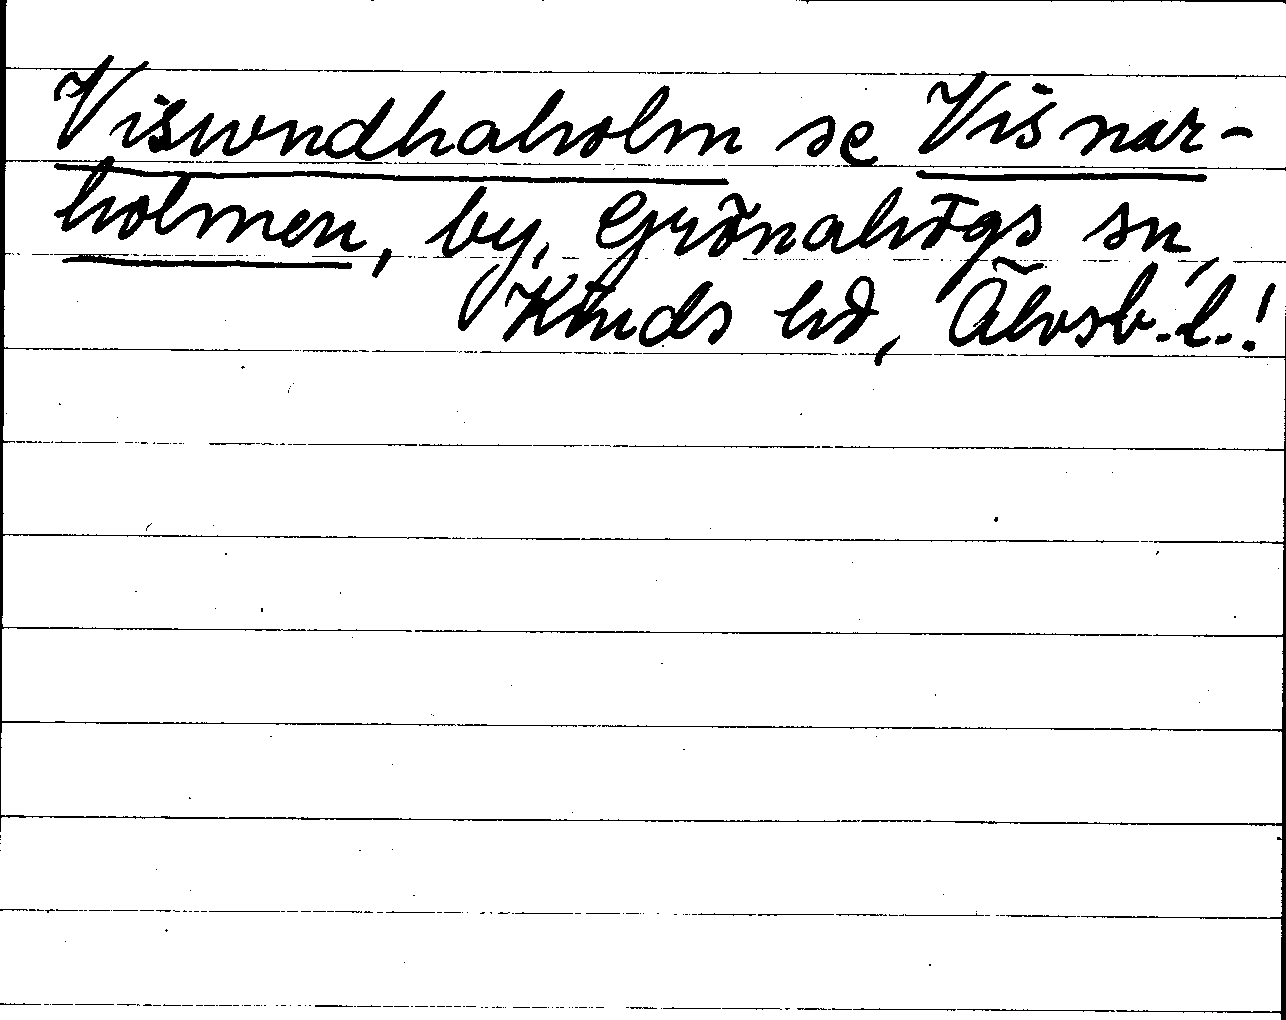 Viswndhaholm se Visnar-
holmen, by, Grönahögs sn,
Kinds hd, Älvsb. l.!